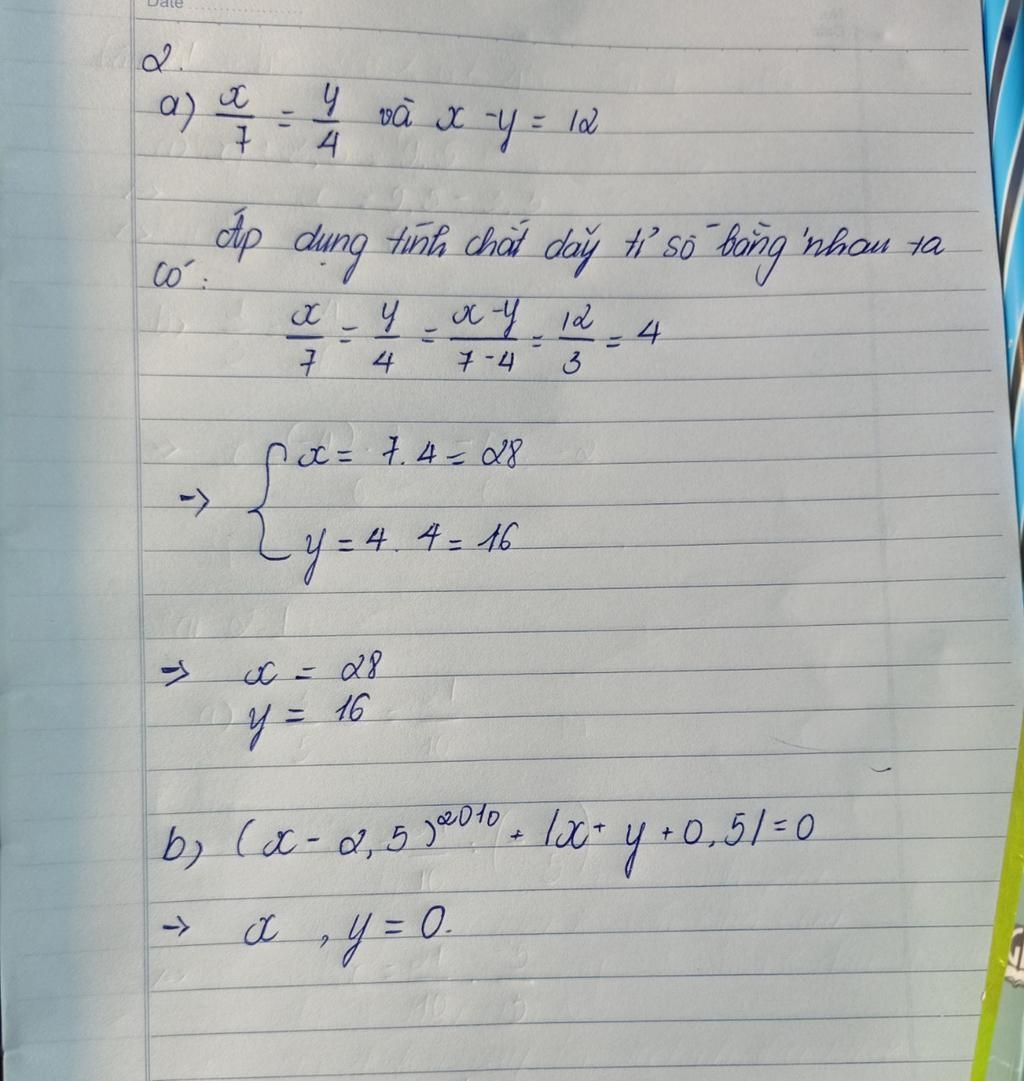 Date
2.
a) x/7 = y/4 và x - y = 12
Áp dụng tính chất dãy tỉ số bằng nhau ta
có:
x/7 = y/4 = (x - y)/(7 - 4) = 12/3 = 4
→ { x = 7. 4 = 28
y = 4. 4 = 16
⇒ x = 28
y = 16
b) (x - 2,5)^2010 + |x + y + 0,5| = 0
→ x , y = 0.